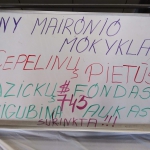 NY MAIRONIO
MOKYKLA
CEPELINŲ PIETŪS
AZICKŲ FONDAS
IGUBINA AUKAS
$743
SURINKTA!!!